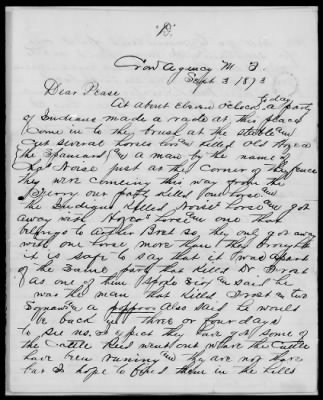 "B"
Crow Agency M. T.
Sept 3 1873
Dear Pease
At about eleven oclock to day a party
of Indians made a rade at this place
Come in to the brush at the stable and
Cut several horses loose killed old
(the Spaniard) and a man by the name of
Noise just at the Corner of the fence
they were comeing this way from the
Ferry our party killed one horse and
the Indians killed Noise' horse and got
away with horse and one that
belongs to so they only got away
with one horse more than they brought
it is safe to say that it was a part
of the same party that killed Dr Frost
as one of them spoke and said he
was the man that killed Frost and two
and a pappoos Also said he would
be back in three or four days
to see us. I expect they have got some of
the Cattle Reid went out where the Cattle
have been runing and they are not there
but I hope to find them in the hills